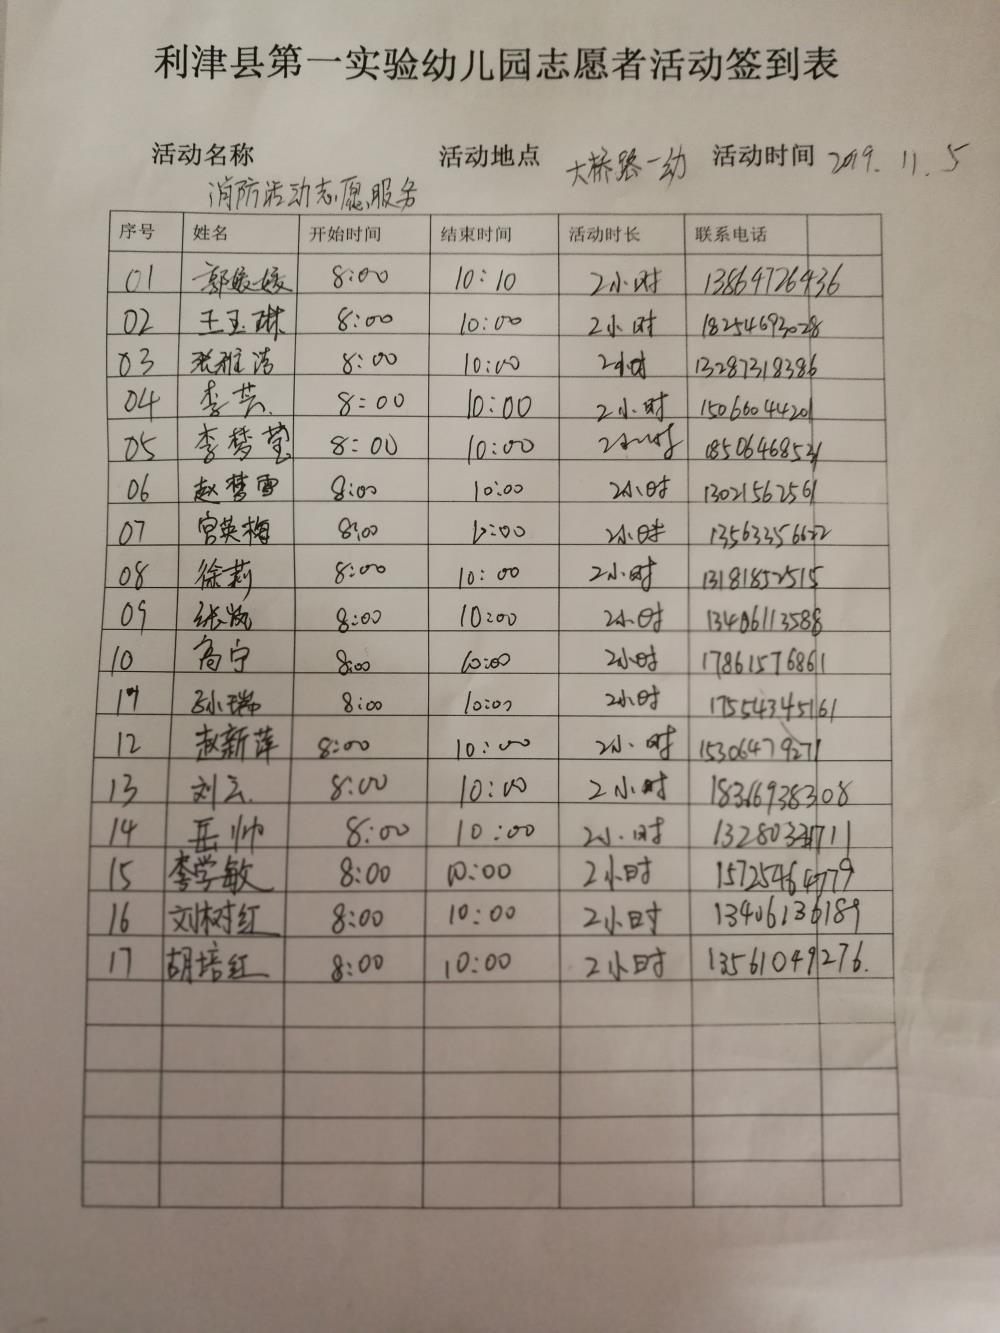 利津县第一实验幼儿园志愿者活动签到表
活动名称 活动地点 大桥路一幼 活动时间 2019.11.5
消防活动志愿服务
序号 姓名 开始时间 结束时间 活动时长 联系电话
01 郭媛媛 8:00 10:10 2小时 13864726436
02 王玉琳 8:00 10:00 2小时 18254693028
03 张雅洁 8:00 10:00 2小时 13287318386
04 李芸 8:00 10:00 2小时 15066044201
05 李梦莹 8:00 10:00 2小时
06 赵梦雪 8:00 10:00 2小时 13021562561
07 宫英梅 8:00 10:00 2小时 13563356622
08 徐莉 8:00 10:00 2小时 13181852515
09 张岚 8:00 10:00 2小时 13406113588
10 高宁 8:00 10:00 2小时 17861576861
11 孙瑞 8:00 10:00 2小时 17554345161
12 赵新萍 8:00 10:00 2小时 15306479271
13 刘云 8:00 10:00 2小时 18366938308
14 岳帅 8:00 10:00 2小时
15 李学敏 8:00 10:00 2小时 15725464779
16 刘树红 8:00 10:00 2小时 13406136189
17 胡培红 8:00 10:00 2小时 13561049276.